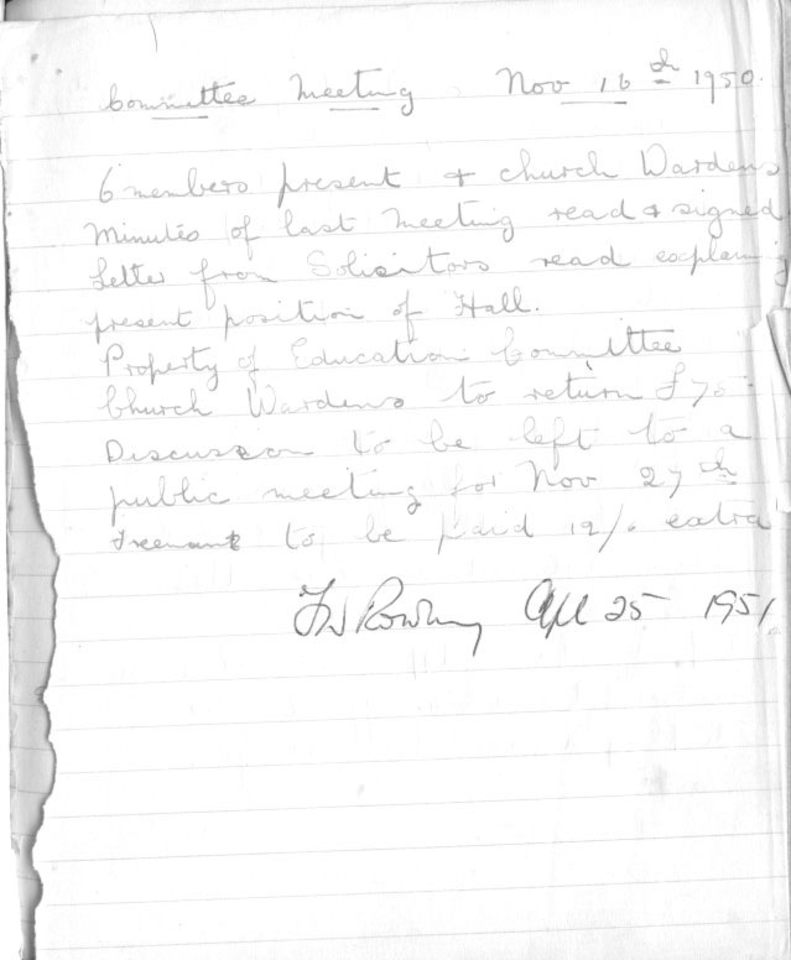 Committee Meeting Nov 16th 1950.
6 members present & church Wardens
Minutes of last Meeting read & signed
Letter from Solicitors read explaining
present position of Hall.
Property of Education Committee
Church Wardens to return £75
Discussion to be left to a
public meeting for Nov 27th
to be paid 12/. extra
25 1951